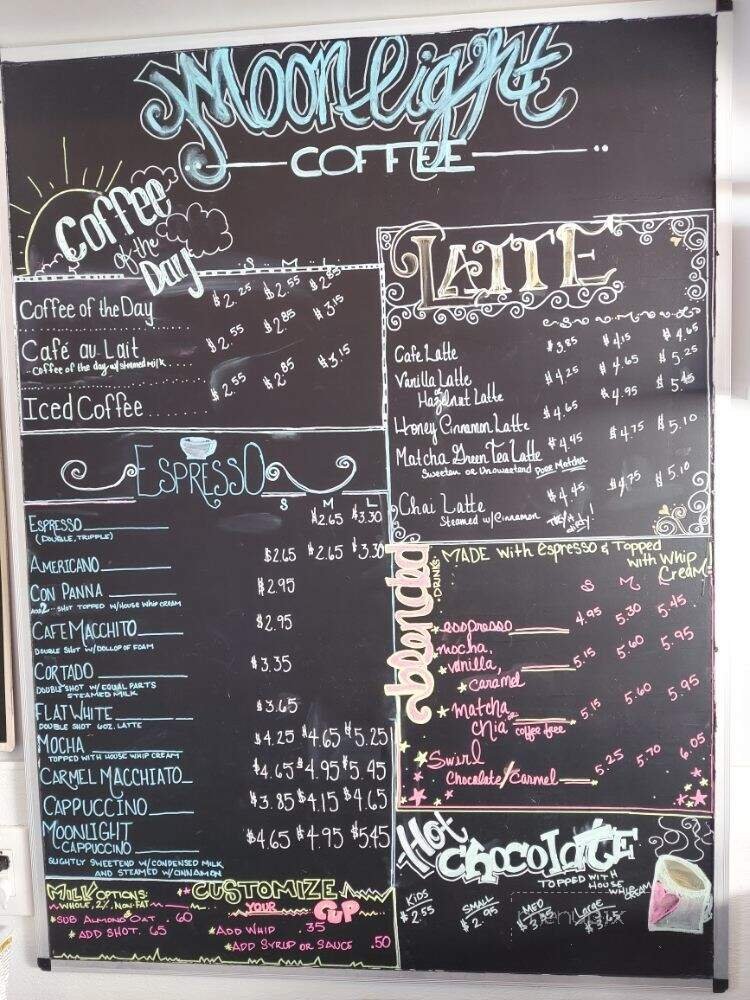 Moonlight
COFFEE
Coffee
of the
Day
S M L
Coffee of the Day $2.25 $2.55 $2.85
Café au Lait $2.55 $2.85 $3.15
Coffee of the day w/ steamed milk
Iced Coffee $2.55 $2.85 $3.15
ESPRESSO
S M L
ESPRESSO $2.65 $3.30
(DOUBLE, TRIPPLE)
AMERICANO $2.65 $2.65 $3.30
CON PANNA $2.95
SHOT TOPPED W/HOUSE WHIP CREAM
CAFE MACCHITO $2.95
DOUBLE SHOT W/ DOLLOP OF FOAM
CORTADO $3.35
DOUBLE SHOT W/ EQUAL PARTS
STEAMED MILK
FLAT WHITE $3.65
DOUBLE SHOT 6OZ. LATTE
MOCHA $4.25 $4.65 $5.25
TOPPED WITH HOUSE WHIP CREAM
CARMEL MACCHIATO $4.65 $4.95 $5.45
CAPPUCCINO $3.85 $4.15 $4.65
MOONLIGHT
CAPPUCCINO $4.65 $4.95 $5.45
SLIGHTLY SWEETEND W/ CONDENSED MILK
AND STEAMED W/ CINNAMON
MILK OPTIONS:
WHOLE, 2%, NON-FAT
*SUB ALMOND OAT .60
*ADD SHOT .65
CUSTOMIZE
YOUR CUP
*ADD WHIP .35
*ADD SYRUP OR SAUCE .50
LATTE
S M L
Cafe Latte $3.85 $4.15 $4.65
Vanilla Latte $4.25 $4.65 $5.25
or
Hazelnut Latte
Honey Cinnamon Latte $4.65 $4.95 $5.45
Matcha Green Tea Latte $4.45 $4.75 $5.10
Sweeten or Unsweetend Pure Matcha
Chai Latte $4.45 $4.75 $5.10
Steamed w/ Cinnamon
Try it dirty!
blended
DRINK
MADE with espresso & Topped
with Whip
Cream!
S M L
*esspresso 4.95 5.30 5.45
*mocha,
*vanilla, 5.15 5.60 5.95
*caramel
*matcha
or
chia coffee free 5.15 5.60 5.95
Swirl
Chocolate/Carmel 5.25 5.70 6.05
Hot
Chocolate
TOPPED WITH
HOUSE
WHIP CREAM
KIDS SMALL MED Large
$2.55 $2.95 $3.65